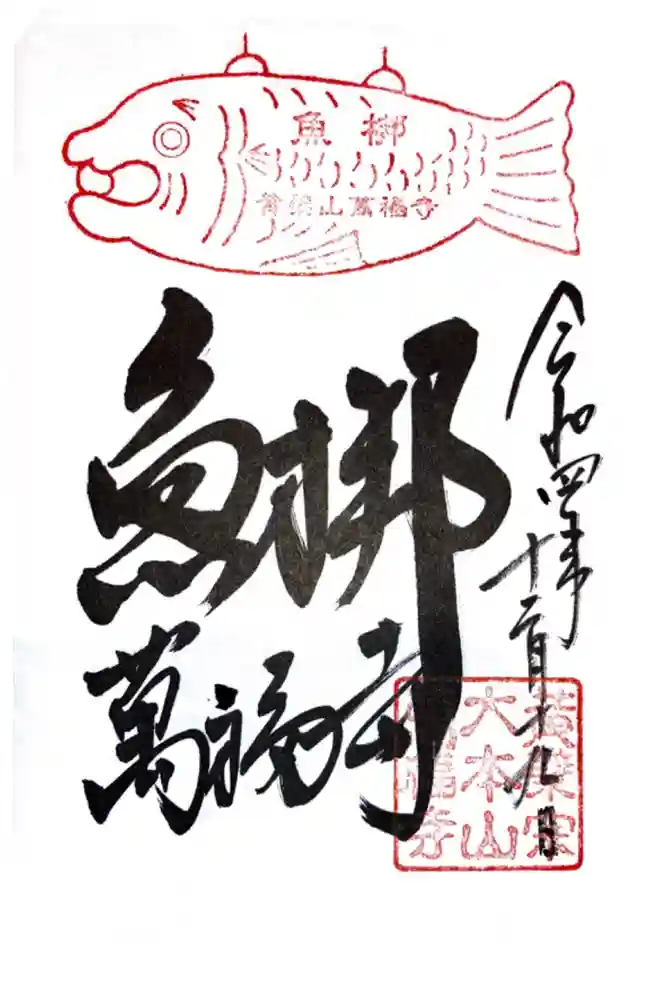 魚梆
黄檗山萬福寺
令和四年十二月十九日
魚梆
萬福寺
黄檗宗
大本山
萬福寺